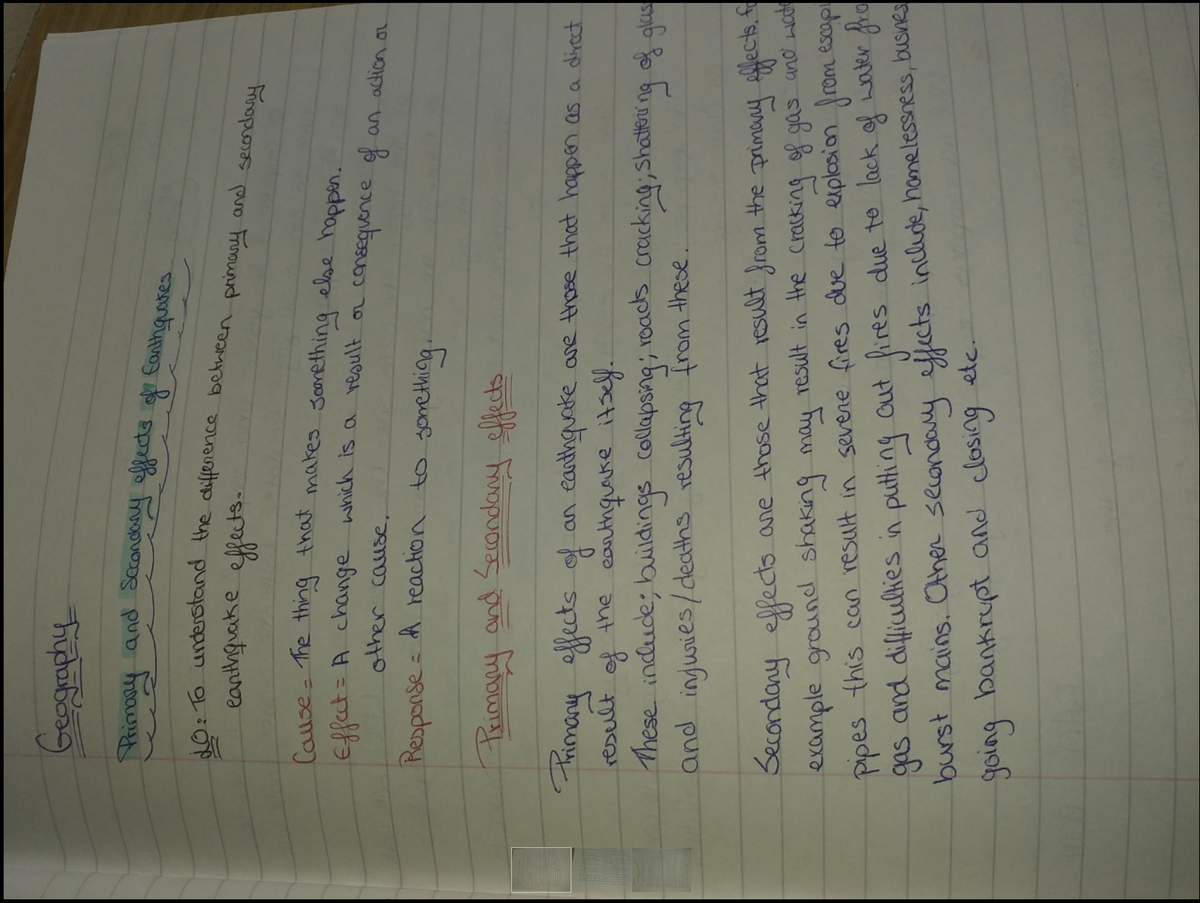 Geography
Primary and Secondary effects of Earthquakes
LO: To understand the difference between primary and secondary
earthquake effects.
Cause = The thing that makes something else happen.
Effect = A change which is a result or consequence of an action or
other cause.
Response = A reaction to something.
Primary and Secondary effects
Primary effects of an earthquake are those that happen as a direct
result of the earthquake itself.
These include; buildings collapsing; roads cracking; shattering of glas
and injuries/deaths resulting from these.
Secondary effects are those that result from the primary effects. fo
example ground shaking may result in the cracking of gas and wat
pipes this can result in severe fires due to explosion from escapi
gas and difficulties in putting out fires due to lack of water fro
burst mains. Other secondary effects include, homelessness, busines
going bankrupt and closing etc.